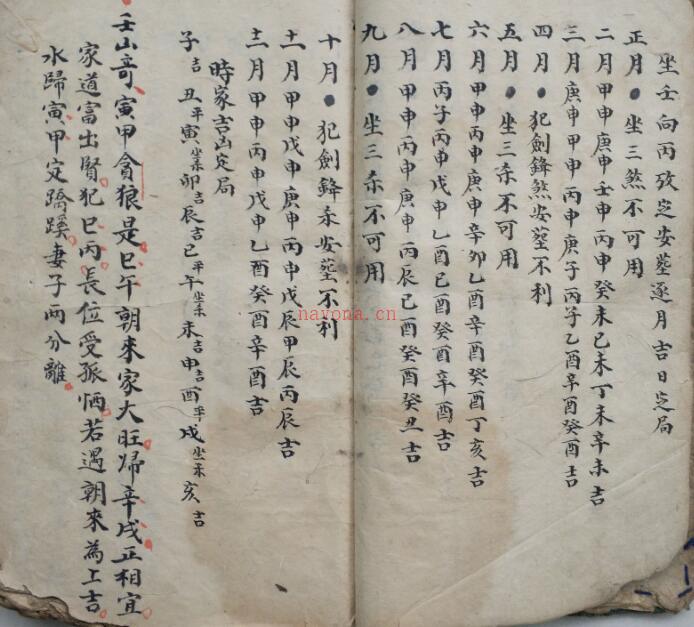 坐壬向丙改定安葬逐月吉日定局
正月●坐三煞不可用
二月甲申庚申壬申丙申癸未己未丁未辛未吉
三月庚申甲申丙申庚子丙子乙酉辛酉癸酉吉
四月●犯劍鋒煞安葬不利
五月●坐三杀不可用
六月甲申丙申庚申辛卯乙酉辛酉癸酉丁亥吉
七月丙子丙申戊申乙酉己酉癸酉辛酉吉
八月甲申丙申庚申丙辰己酉癸酉癸丑吉
九月●坐三杀不可用
十月●犯劍鋒杀安葬不利
十一月甲申戊申庚申丙申戊辰甲辰丙辰吉
十二月甲申丙申戊申乙酉癸酉辛酉吉
時家吉凶定局
子吉丑平寅坐杀卯吉辰吉巳平午坐杀未吉申吉酉平戌坐杀亥吉
壬山奇寅甲貪狼是巳午朝來家大旺歸辛戌正相宜
家道富出賢犯巳丙長位受孤恓若遇朝來為上吉
水歸寅甲定蹺蹊妻子兩分離
nayona.cn